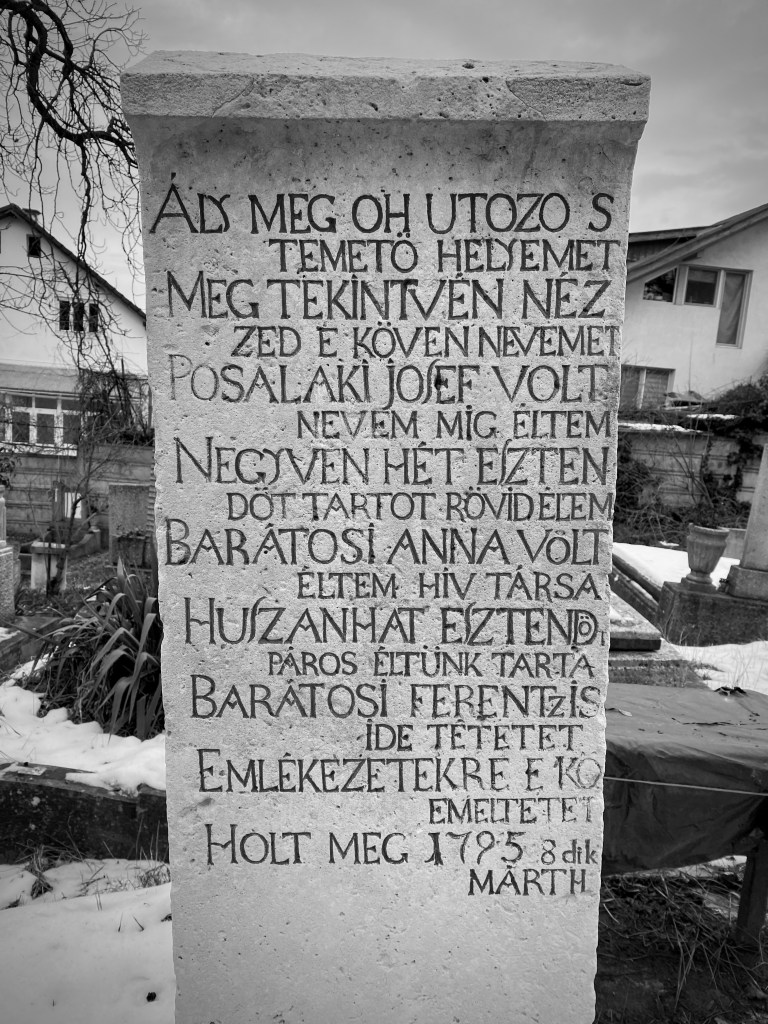 ÁLY MEG OH UTOZO S
TEMETÖ HELYEMET
MEG TEKINTVÉN NÉZ
ZED E KÖVEN NEVEMET
POSALAKI JOSEF VOLT
NEVEM MIG ÉLTEM
NEGYVEN HÉT ESZTEN
DÖT TARTOT RÖVID ÉLEM
BARÁTOSI ANNA VÖLT
ÉLTEM HIV TÁRSA
HUSZANHAT ESZTENDÖT
PÁROS ÉLTÜNK TARTÁ
BARÁTOSI FERENTZ IS
IDE TÉTETET
EMLÉKEZETEKRE E KÖ
EMELTETET
HOLT MEG 1795 8dik
MÁRTII